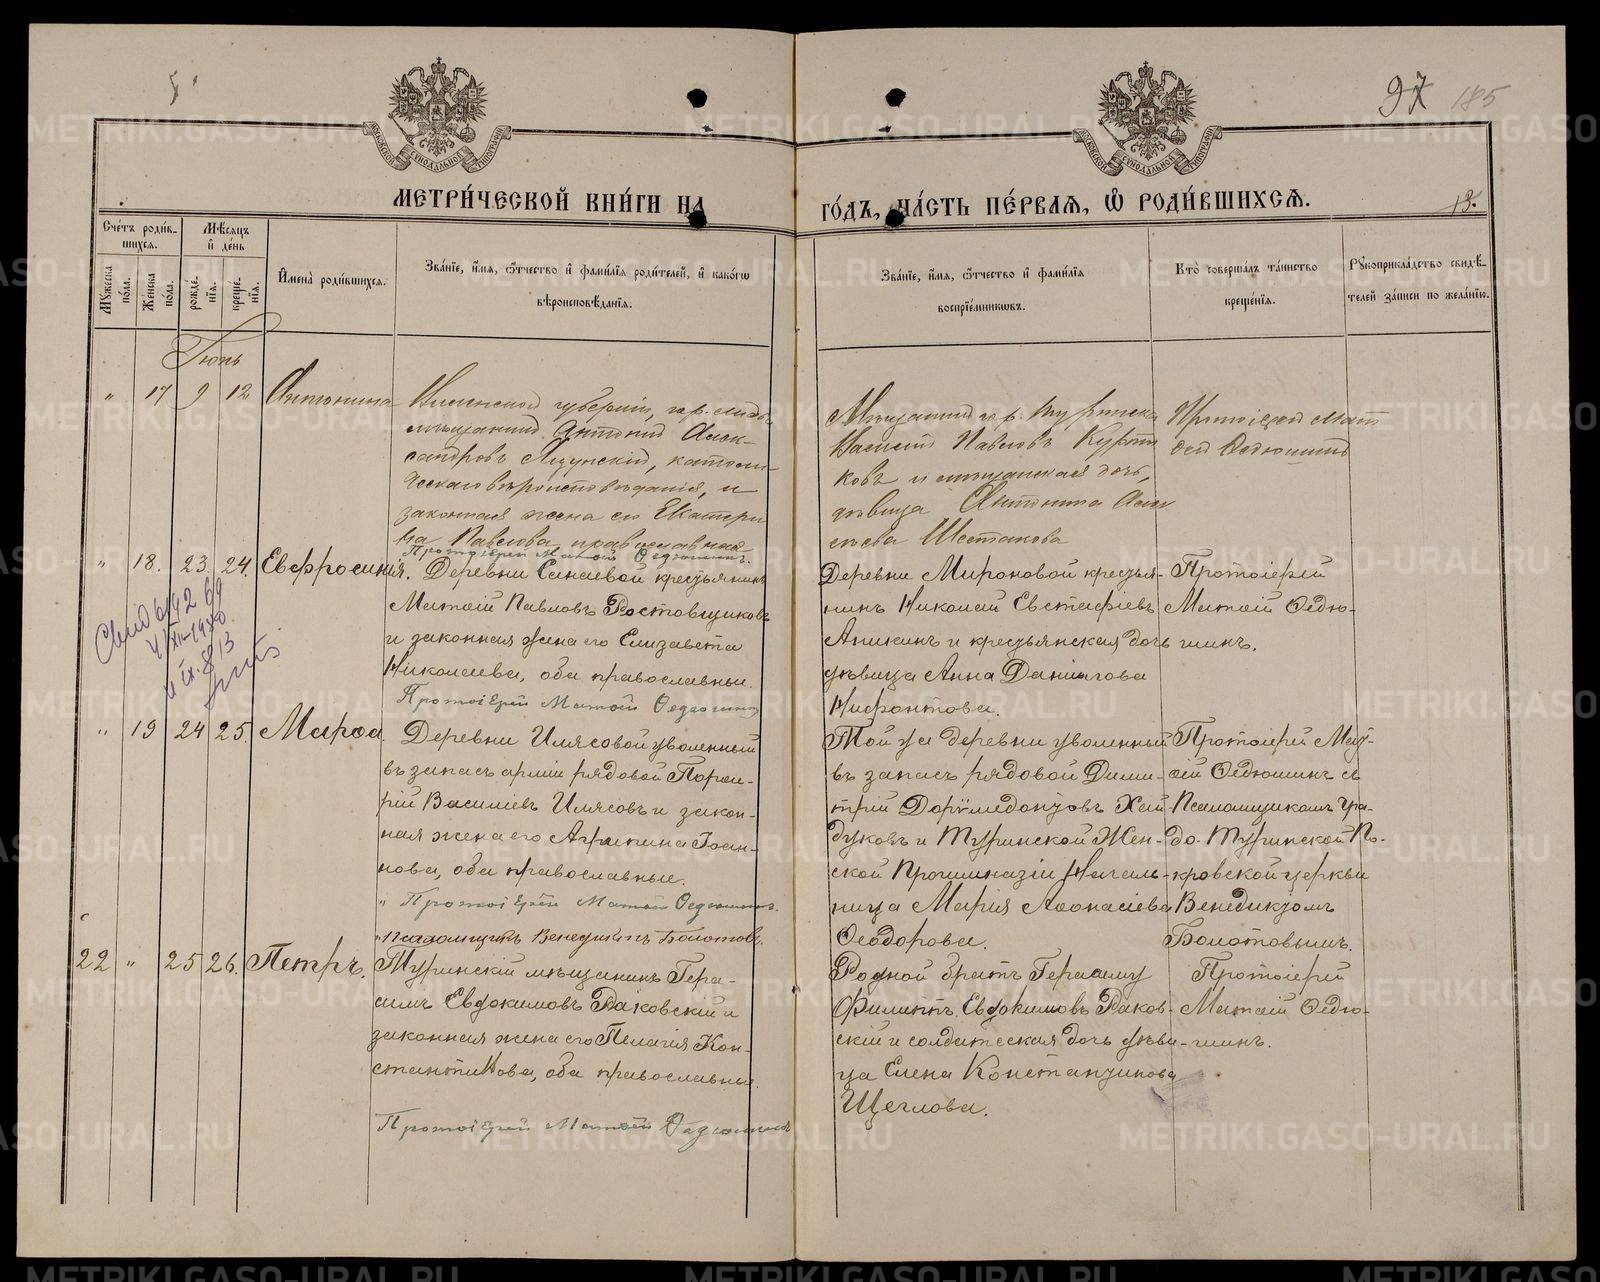 97 185
МЕТРИ́ЧЕСКОЙ КНИ́ГИ НА ГО́ДЪ, ЧА́СТЬ ПЕ́РВАЯ, Ѡ҆ РОДИ́ВШИХСЯ.
13.
Сче́тъ роди́в-
шихся.
Мѣ́сяцъ
и҆ де́нь
Мꙋ́жеска
по́ла.
Же́нска
по́ла.
рожде́-
нїя.
креще́-
нїя.
И҆мена̀ роди́вшихся.
Зва́нїе, и҆́мя, ѻ҆́тчество и҆ фами́лїя роди́телей, и҆ како́гѡ
вѣроисповѣ́данїя.
Зва́нїе, и҆́мя, ѻ҆́тчество и҆ фами́лїя
воспрїе́мникѡвъ.
Кто̀ соверша́лъ та́инство
креще́нїя.
Рꙋкоприкла́дство свидѣ́-
телей за́писи по жела́нїю.
Іюнь
" 17 9 12 Антонина
губерніи, гор.
мѣщанинъ Антоній Алек-
сандровъ католи-
ческаго вѣроисповѣданія, и
законная жена его Екатери
на Павлова православная
Протоіерей Матѳій Ѳедюшинъ.
Мѣщанинъ гор. Туринска
Василій Павловъ
ковъ и мѣщанская дочь,
дѣвица Антонина
Шестакова
Протоіерей Мат
ѳей Ѳедюшинъ
" 18. 23 24. Евфросинія.
Деревни крестьянинъ
Матѳій Павловъ Ростовщиковъ
и законная жена его Елизавета
Николаева, оба православные.
Протоіерей Матѳій Ѳедюшинъ
Деревни Мироновой крестья-
нинъ Николай Евстафіевъ
Аникинъ и крестьянская дочь
дѣвица Анна Даніилова
Нифонтова.
Протоіерей
Матѳій Ѳедю-
шинъ.
" 19 24 25. Марѳа.
Деревни Илясовой уволенный
въ запасъ арміи рядовой Порфи-
рій Василіевъ Илясовъ и закон-
ная жена его Агрипина Іоан-
нова, оба православные.
" Протоіерей Матѳій Ѳедюшинъ.
"Псаломщикъ Венедиктъ Болотовъ.
Той же деревни уволенный
въ запасъ рядовой Дими-
трій Доримедонтовъ Хай
дуковъ и Туринской Жен-
ской Прогимназіи Началь-
ница Марія Аѳонасіева
Ѳеодорова.
Протоіерей Мат-
ѳій Ѳедюшинъ съ
Псаломщикомъ Гра-
до-Туринской По-
кровской церкви
Венедиктомъ
Болотовымъ.
22 " 25 26. Петръ.
Туринскій мѣщанинъ Гера-
симъ Евдокимовъ Раковскій и
законная жена его Пелагія Кон-
стантинова, оба православные.
Протоіерей Матѳій Ѳедюшинъ
Родной братъ Герасиму
Филиппъ Евдокимовъ Раков-
скій и солдатская дочь дѣви-
ца Елена Константинова
Щеглова.
Протоіерей
Матѳій Ѳедю-
шинъ.